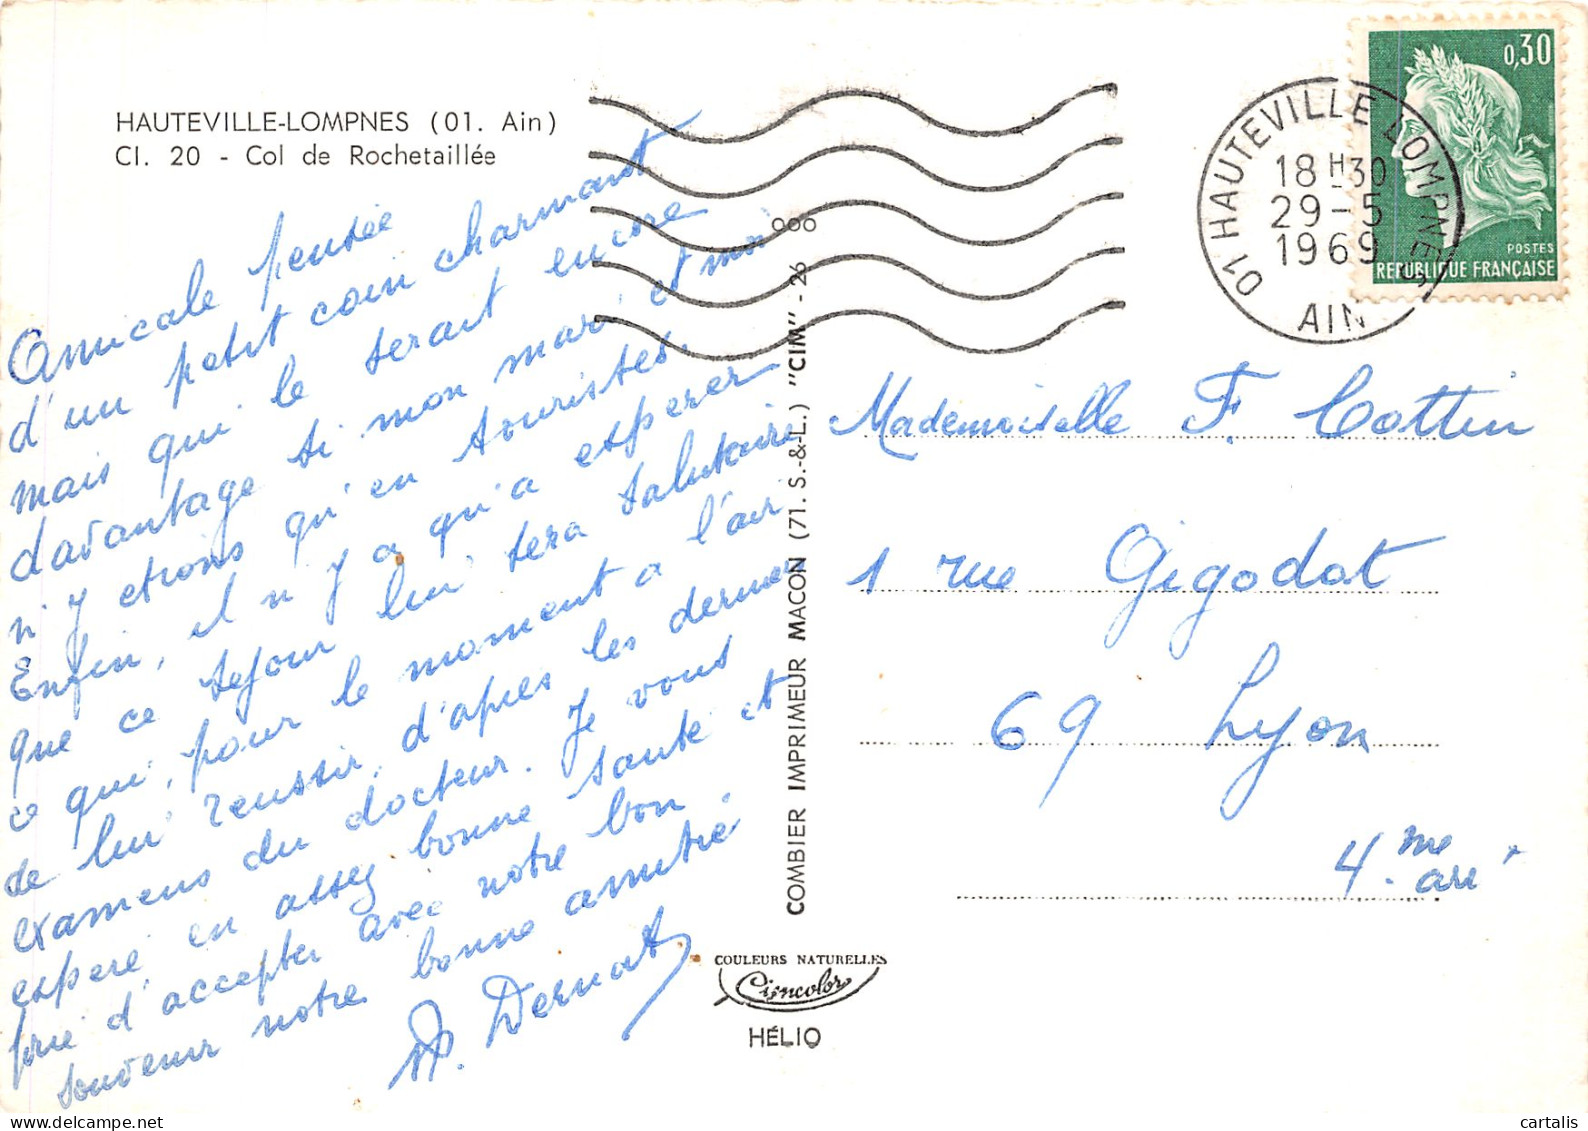 HAUTEVILLE-LOMPNES (01. Ain)
Cl. 20 - Col de Rochetaillée
Amicale pensée
d'un petit coin charmant
mais qui le serait encore
davantage si mon mari et moi
n'y étions qu'en touristes.
Enfin, il n'y a qu'à espérer
que ce séjour lui sera salutaire
ce qui, pour le moment a l'air
de lui réussir, d'après les derniers
examens du docteur. Je vous
espère, en assez bonne santé et
prie d'accepter avec notre bon
souvenir notre bonne amitié
COMBIER IMPRIMEUR MACON (71. S.-&-L.) "CIM" - 26
COULEURS NATURELLES
Cimcolor
HÉLIO
01 HAUTEVILLE LOMPNES
18 H 30
29-5
1969
AIN
0,30
POSTES
REPUBLIQUE FRANÇAISE
Mademoiselle F. Cottin
1 rue Gigodot
69 Lyon
4.me arr
cartalis